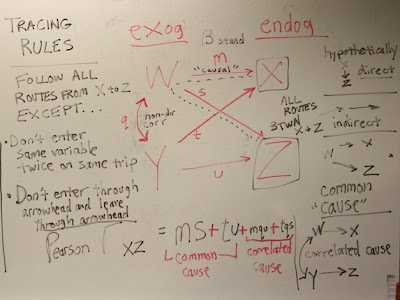 TRACING
RULES
FOLLOW ALL
ROUTES FROM X to Z
EXCEPT...
• Don't enter
same variable
twice on same trip
• Don't enter through
arrowhead and leave
through arrowhead
Pearson r XZ
exog
β stand
endog
W
m
"causal"
X
s
q
non-dir
corr
t
Y
u
Z
ALL
ROUTES
BTWN
X + Z
= ms + tu + mqu + tqs
common
cause
correlated
cause
hypothetically
X
Z
direct
indirect
W → X
→ Z
common
"cause"
W → X
correlated cause
Y → Z